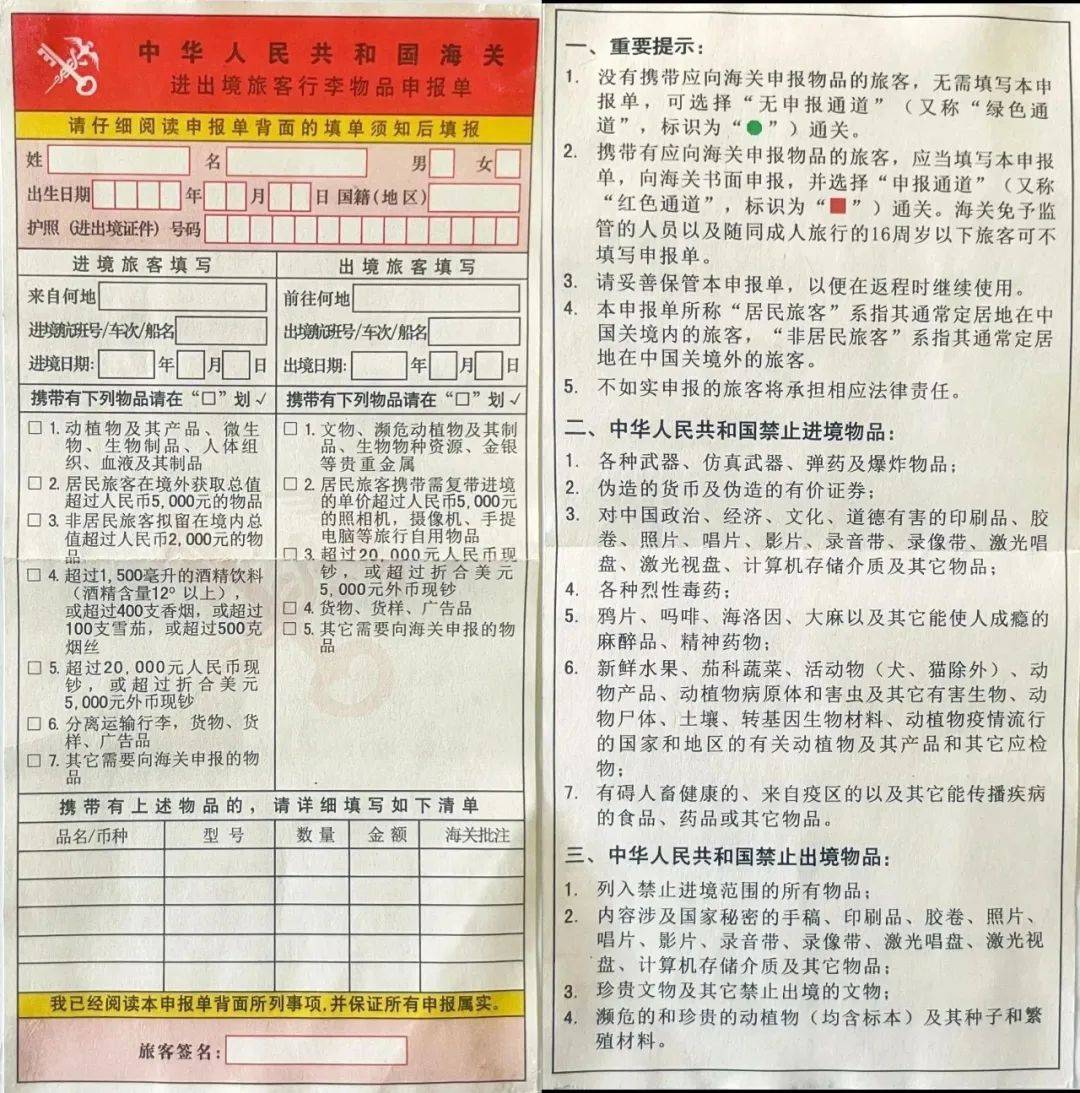 中华人民共和国海关
进出境旅客行李物品申报单
请仔细阅读申报单背面的填单须知后填报
姓 名 男 女
出生日期 年 月 日 国籍(地区)
护照(进出境证件)号码
进境旅客填写
来自何地
进境航班号/车次/船名
进境日期: 年 月 日
携带有下列物品请在“□”划√
□ 1. 动植物及其产品、微生
物、生物制品、人体组
织、血液及其制品
□ 2. 居民旅客在境外获取总值
超过人民币5,000元的物品
□ 3. 非居民旅客拟留在境内总
值超过人民币2,000元的物
品
□ 4. 超过1,500毫升的酒精饮料
(酒精含量12°以上),
或超过400支香烟,或超过
100支雪茄,或超过500克
烟丝
□ 5. 超过20,000元人民币现
钞,或超过折合美元
5,000元外币现钞
□ 6. 分离运输行李,货物、货
样、广告品
□ 7. 其它需要向海关申报的物
品
出境旅客填写
前往何地
出境航班号/车次/船名
出境日期: 年 月 日
携带有下列物品请在“□”划√
□ 1. 文物、濒危动植物及其制
品、生物物种资源、金银
等贵重金属
□ 2. 居民旅客携带需复带进境
的单价超过人民币5,000元
的照相机,摄像机、手提
电脑等旅行自用物品
□ 3. 超过20,000元人民币现
钞,或超过折合美元
5,000元外币现钞
□ 4. 货物、货样、广告品
□ 5. 其它需要向海关申报的物
品
携带有上述物品的,请详细填写如下清单
品名/币种 型号 数量 金额 海关批注
我已经阅读本申报单背面所列事项,并保证所有申报属实。
旅客签名:
一、重要提示:
1. 没有携带应向海关申报物品的旅客,无需填写本申
报单,可选择“无申报通道”(又称“绿色通
道”,标识为“●”)通关。
2. 携带有应向海关申报物品的旅客,应当填写本申报
单,向海关书面申报,并选择“申报通道”(又称
“红色通道”,标识为“■”)通关。海关免予监
管的人员以及随同成人旅行的16周岁以下旅客可不
填写申报单。
3. 请妥善保管本申报单,以便在返程时继续使用。
4. 本申报单所称“居民旅客”系指其通常定居地在中
国关境内的旅客,“非居民旅客”系指其通常定居
地在中国关境外的旅客。
5. 不如实申报的旅客将承担相应法律责任。
二、中华人民共和国禁止进境物品:
1. 各种武器、仿真武器、弹药及爆炸物品;
2. 伪造的货币及伪造的有价证券;
3. 对中国政治、经济、文化、道德有害的印刷品、胶
卷、照片、唱片、影片、录音带、录像带、激光唱
盘、激光视盘、计算机存储介质及其它物品;
4. 各种烈性毒药;
5. 鸦片、吗啡、海洛因、大麻以及其它能使人成瘾的
麻醉品、精神药物;
6. 新鲜水果、茄科蔬菜、活动物(犬、猫除外)、动
物产品、动植物病原体和害虫及其它有害生物、动
物尸体、土壤、转基因生物材料、动植物疫情流行
的国家和地区的有关动植物及其产品和其它应检
物;
7. 有碍人畜健康的、来自疫区的以及其它能传播疾病
的食品、药品或其它物品。
三、中华人民共和国禁止出境物品:
1. 列入禁止进境范围的所有物品;
2. 内容涉及国家秘密的手稿、印刷品、胶卷、照片、
唱片、影片、录音带、录像带、激光唱盘、激光视
盘、计算机存储介质及其它物品;
3. 珍贵文物及其它禁止出境的文物;
4. 濒危的和珍贵的动植物(均含标本)及其种子和繁
殖材料。